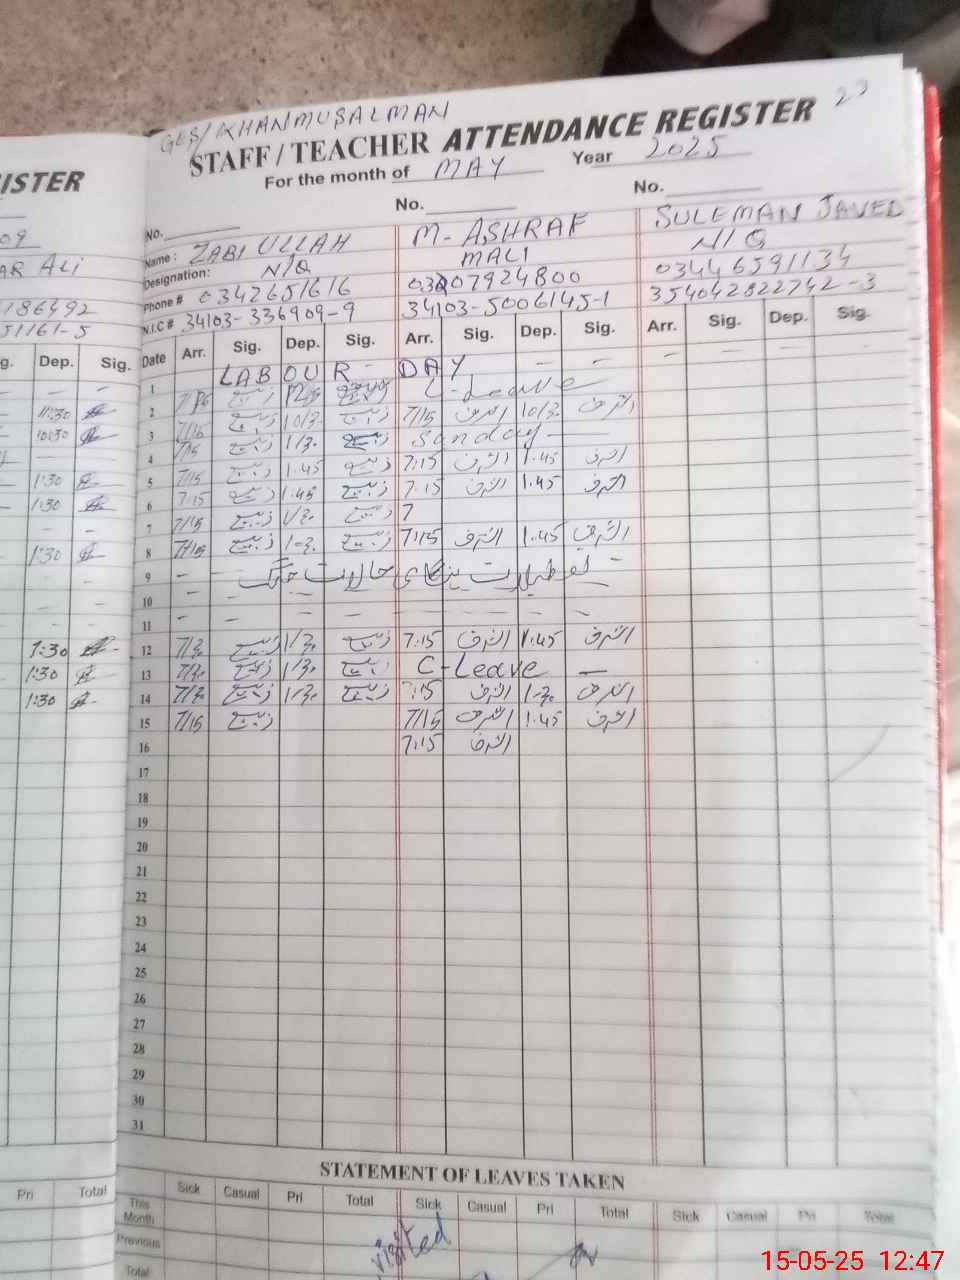 GES/KHANMUSALMAN
STAFF / TEACHER ATTENDANCE REGISTER 23
For the month of MAY Year 2025
No. No. No.
Name: ZABI ULLAH M. ASHRAF SULEMAN JAVED
Designation: N/Q MALI N/Q
Phone # 0342651616 03007924800 03446591134
N.I.C # 34103-336909-9 34103-5006145-1 354042822742-3
Date Arr. Sig. Dep. Sig. Arr. Sig. Dep. Sig. Arr. Sig. Dep. Sig.
1 LABOUR - DAY - -
2 C-Leave
3 7/15 ذبیح 10/30 ذبیح 7/15 اشرف 10/30 اشرف
4 7/15 ذبیح 1/30 ذبیح Sunday
5 7/15 ذبیح 1.45 ذبیح 7:15 اشرف 1.45 اشرف
6 7:15 ذبیح 1.45 ذبیح 7:15 اشرف 1.45 اشرف
7 7/15 ذبیح 1/30 ذبیح 7
8 7/15 ذبیح 1-30 ذبیح 7:15 اشرف 1.45 اشرف
9 - - تعطیلات ہنگامی حالات جنگ -
10
11
12 7/30 ذبیح 1/30 ذبیح 7:15 اشرف 1.45 اشرف
13 7/30 ذبیح 1/30 ذبیح C-Leave -
14 7/30 ذبیح 1-30 ذبیح 7:15 اشرف 1-30 اشرف
15 7/15 ذبیح 7/15 اشرف 1.45 اشرف
16 7:15 اشرف
17
18
19
20
21
22
23
24
25
26
27
28
29
30
31
STATEMENT OF LEAVES TAKEN
Sick Casual Pri Total Sick Casual Pri Total Sick Casual Pri Total
This Month
Previous
Total
visited
ISTER
AR ALI
186492
51161-5
Dep. Sig.
11:30
10:30
1:30
1:30
1:30
1:30
1:30
1:30
Pri Total
15-05-25 12:47